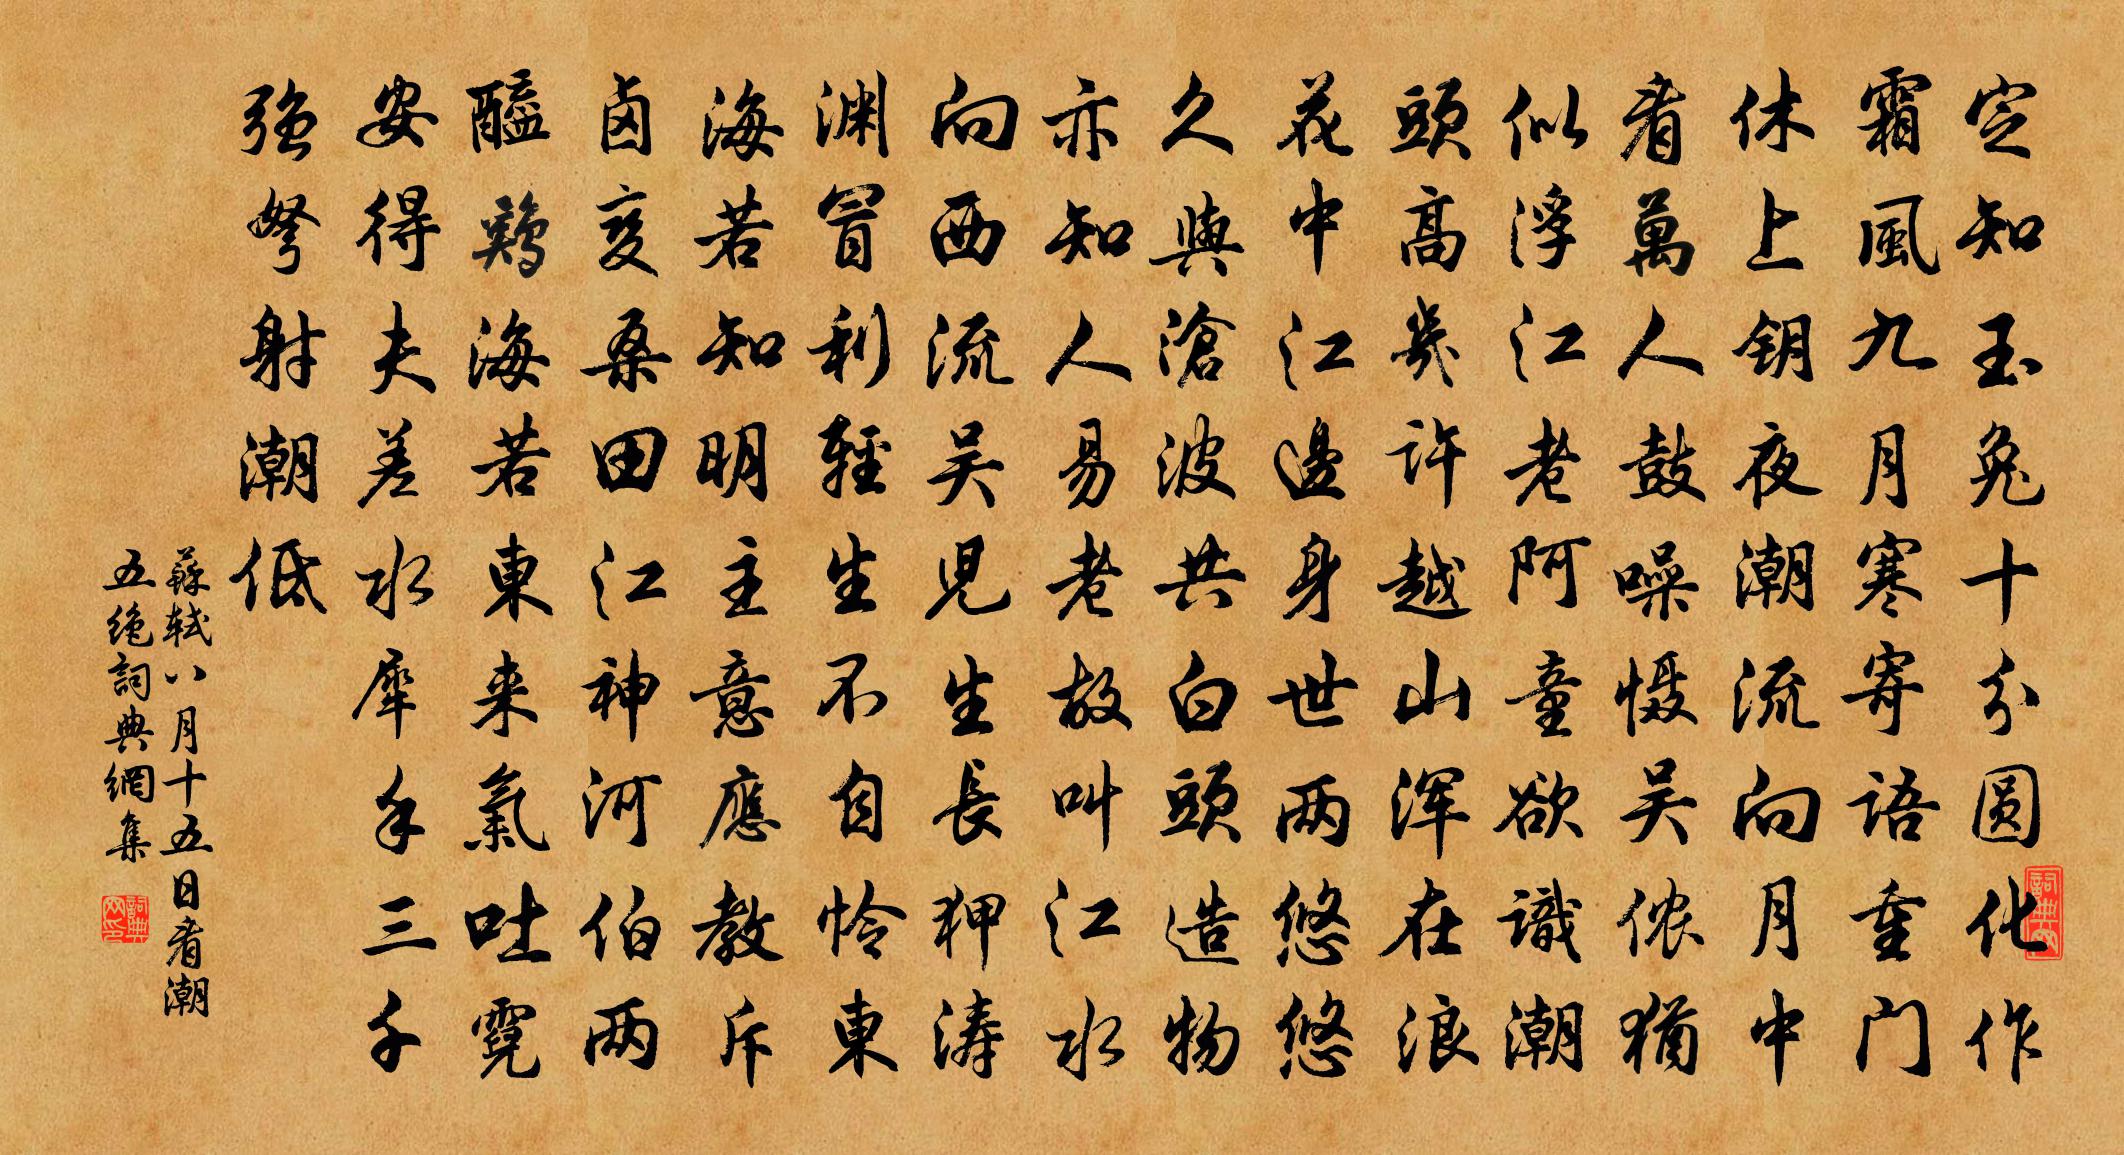 定知玉兔十分圆化作
霜風九月寒寄語重门
休上钥夜潮流向月中
看萬人鼓噪慑吴侬猶
似浮江老阿童欲識潮
頭高幾许越山浑在浪
花中江邊身世两悠悠
久與滄波共白頭造物
亦知人易老故叫江水
向西流吴児生長狎涛
渊冒利輕生不自怜東
海若知明主意應教斥
卤变桑田江神河伯两
醯鷄海若東来氣吐霓
安得夫差水犀手三千
强弩射潮低
蘇轼八月十五日看潮
五绝詞典網集
詞典网
詞典网印